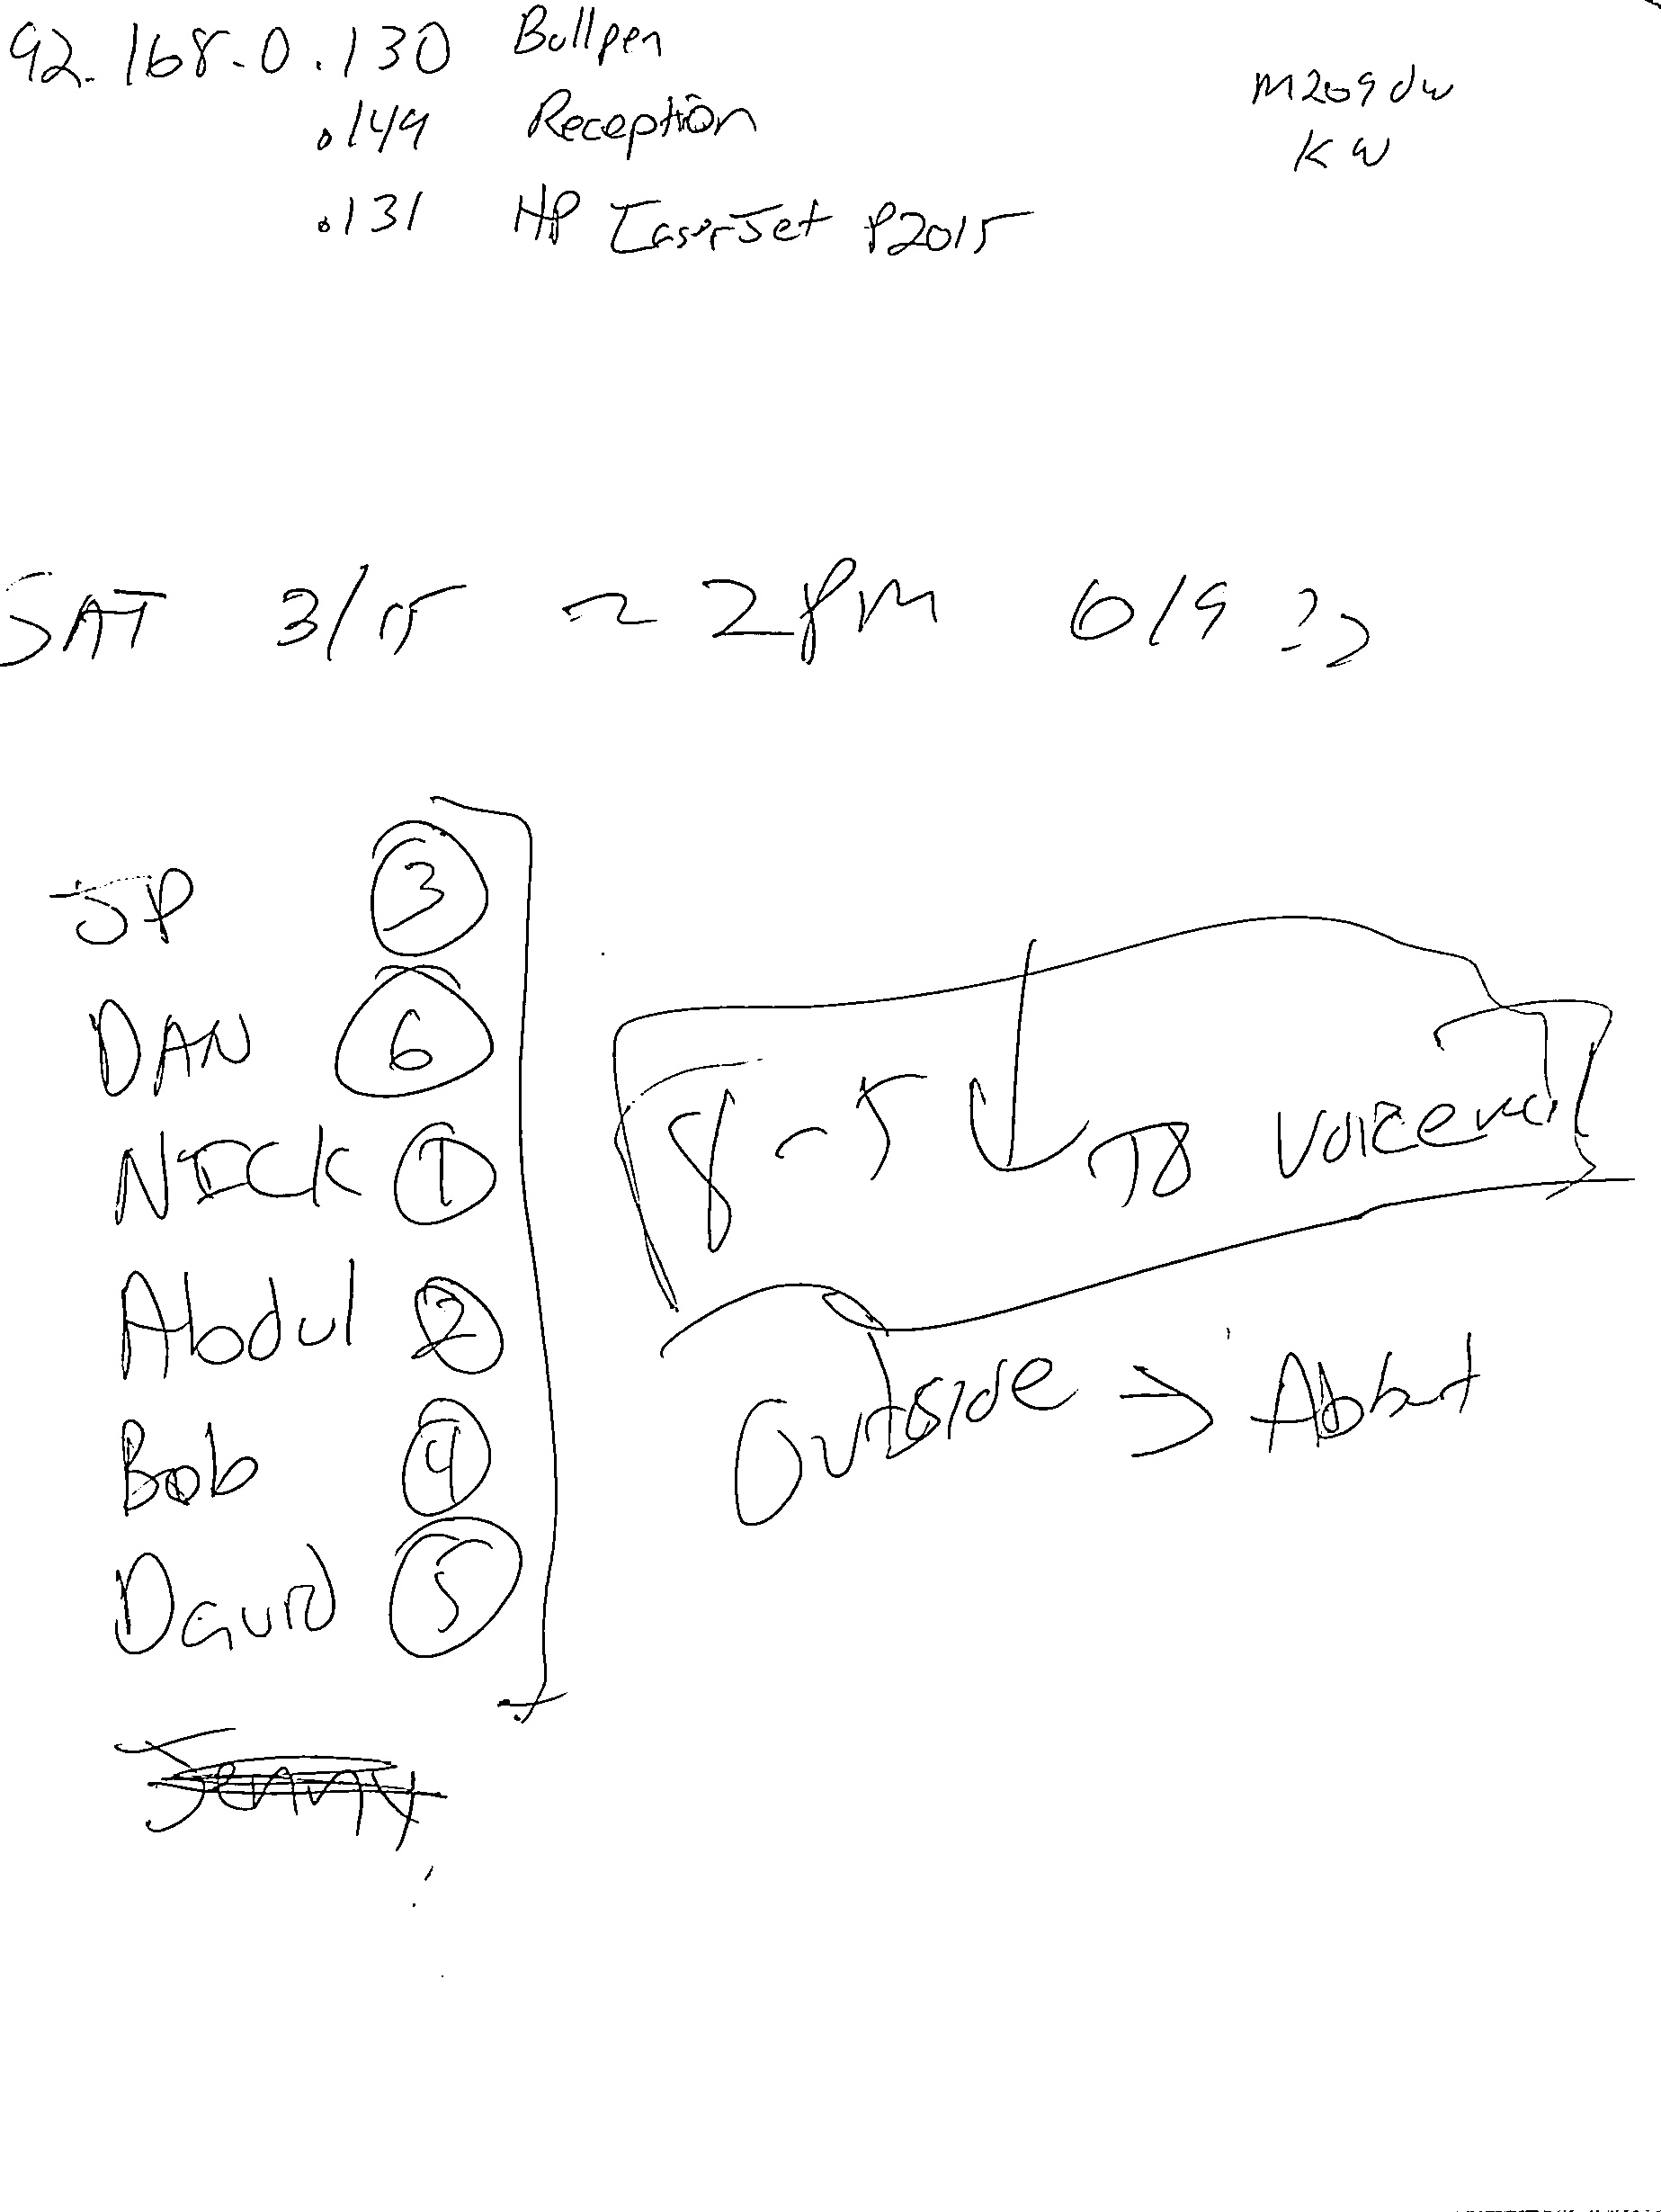 92.168.0.130 Bullpen
.149 Reception
.131 HP LaserJet P2015
M209dw
KW
SAT 3/15 ~ 2PM
JP 3
DAN 6
NICK 1
Abdul 2
Bob 4
David 5
Jenny
8-5 ↓ TO Voicemail
Outside →